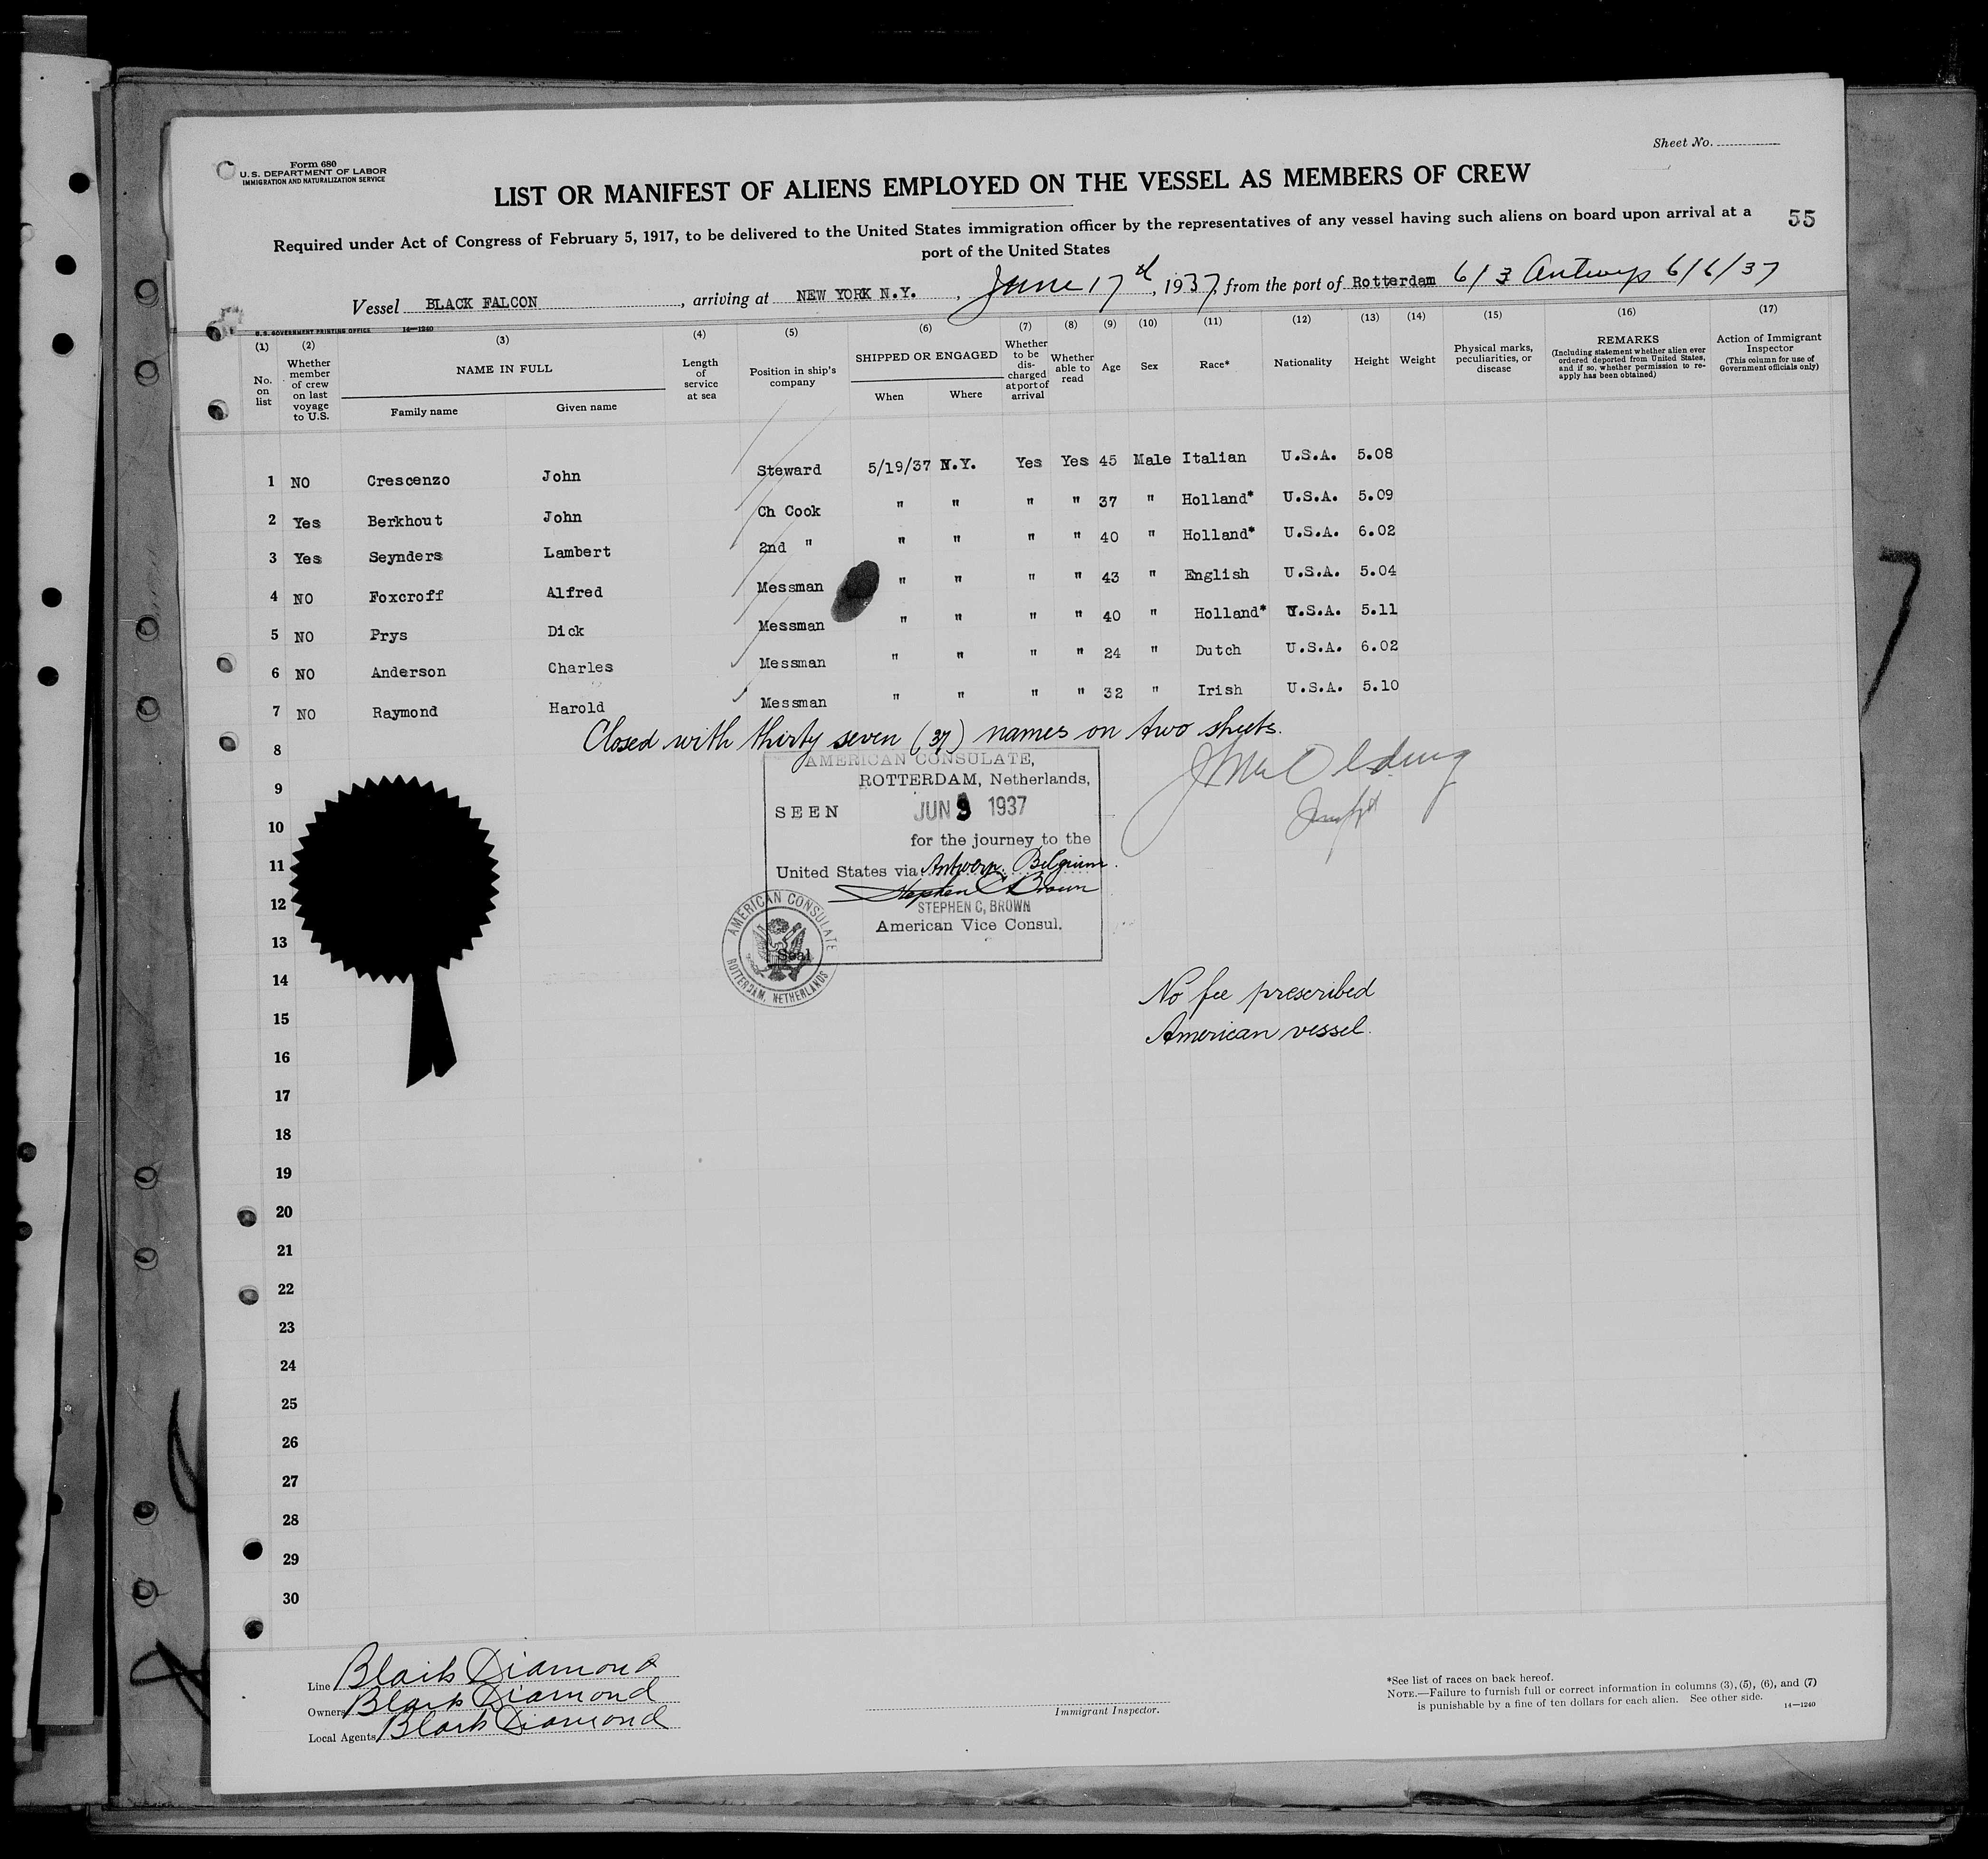 Sheet No.
Form 680
U.S. DEPARTMENT OF LABOR
IMMIGRATION AND NATURALIZATION SERVICE
LIST OR MANIFEST OF ALIENS EMPLOYED ON THE VESSEL AS MEMBERS OF CREW
55
Required under Act of Congress of February 5, 1917, to be delivered to the United States immigration officer by the representatives of any vessel having such aliens on board upon arrival at a
port of the United States
Vessel BLACK FALCON, arriving at NEW YORK N.Y., June 17, 1937, from the port of Rotterdam 6/3 Antwerp 6/6/37
U.S. GOVERNMENT PRINTING OFFICE 14—1240
(1) No. on list
(2) Whether member of crew on last voyage to U.S.
(3) NAME IN FULL Family name Given name
(4) Length of service at sea
(5) Position in ship's company
(6) SHIPPED OR ENGAGED When Where
(7) Whether to be discharged at port of arrival
(8) Whether able to read
(9) Age
(10) Sex
(11) Race*
(12) Nationality
(13) Height
(14) Weight
(15) Physical marks, peculiarities, or disease
(16) REMARKS (Including statement whether alien ever ordered deported from United States, and if so, whether permission to reapply has been obtained)
(17) Action of Immigrant Inspector (This column for use of Government officials only)
1 NO Crescenzo John Steward 5/19/37 N.Y. Yes Yes 45 Male Italian U.S.A. 5.08
2 Yes Berkhout John Ch Cook " " " " 37 " Holland* U.S.A. 5.09
3 Yes Seynders Lambert 2nd " " " " " 40 " Holland* U.S.A. 6.02
4 NO Foxcroff Alfred Messman " " " " 43 " English U.S.A. 5.04
5 NO Prys Dick Messman " " " " 40 " Holland* U.S.A. 5.11
6 NO Anderson Charles Messman " " " " 24 " Dutch U.S.A. 6.02
7 NO Raymond Harold Messman " " " " 32 " Irish U.S.A. 5.10
Closed with thirty seven (37) names on two sheets.
8
9
10
11
12
13
14
15
16
17
18
19
20
21
22
23
24
25
26
27
28
29
30
AMERICAN CONSULATE,
ROTTERDAM, Netherlands,
SEEN JUN 3 1937
for the journey to the
United States via Antwerp, Belgium.
Stephen C Brown
STEPHEN C. BROWN
American Vice Consul.
Seal
AMERICAN CONSULATE
ROTTERDAM, NETHERLANDS
No fee prescribed
American vessel.
Line Black Diamond
Owners Black Diamond
Local Agents Black Diamond
Immigrant Inspector.
*See list of races on back hereof.
NOTE.—Failure to furnish full or correct information in columns (3), (5), (6), and (7)
is punishable by a fine of ten dollars for each alien. See other side.
14—1240